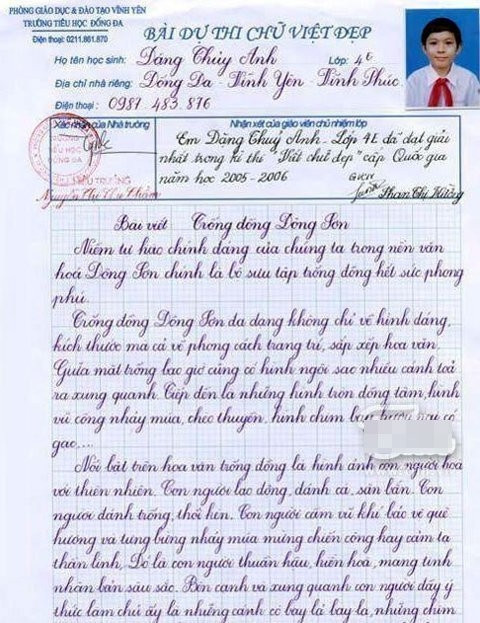 PHÒNG GIÁO DỤC & ĐÀO TẠO VĨNH YÊN
TRƯỜNG TIỂU HỌC ĐỐNG ĐA
Điện thoại: 0211.861.870
BÀI DỰ THI CHỮ VIỆT ĐẸP
Họ tên học sinh: Dặng Thủy Anh Lớp: 4E
Địa chỉ nhà riêng: Đống Đa - Vĩnh Yên - Vĩnh Phúc
Điện thoại: 0987 483 876
Xác nhận của Nhà trường
Nhận xét của giáo viên chủ nhiệm lớp
Em Dặng Thuỷ Anh - Lớp 4E đã đạt giải
nhất trong kì thi "Viết chữ đẹp" cấp Quốc gia
năm học 2005 - 2006
GVCN
Phan Thị Hường
HIỆU TRƯỞNG
Nguyễn Thị
Bài viết Trống đồng Đông Sơn
Niềm tự hào chính đáng của chúng ta trong nền văn
hoá Đông Sơn chính là bộ sưu tập trống đồng hết sức phong
phú.
Trống đồng Đông Sơn đa dạng không chỉ về hình dáng,
kích thước mà cả về phong cách trang trí, sắp xếp hoa văn.
Giữa mặt trống bao giờ cũng có hình ngôi sao nhiều cánh toả
ra xung quanh. Tiếp đến là những hình tròn đồng tâm, hình
vũ công nhảy múa, chèo thuyền, hình chim
gạc....
Nổi bật trên hoa văn trống đồng là hình ảnh con người hoà
với thiên nhiên. Con người lao động, đánh cá, săn bắn. Con
người đánh trống, thổi kèn. Con người cầm vũ khí bảo vệ quê
hương và tưng bừng nhảy múa mừng chiến công hay cảm tạ
thần linh, Đó là con người thuần hậu, hiền hoà, mang tính
nhân bản sâu sắc. Bên cạnh và xung quanh con người đầy ý
thức làm chủ ấy là những cánh cò bay lả bay la, những chim